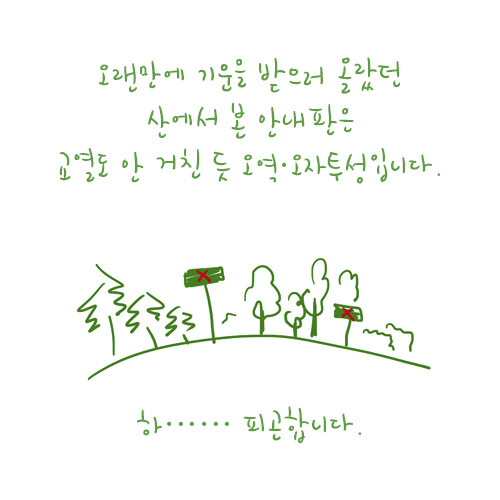 오랜만에 기운을 받으러 올랐던
산에서 본 안내판은
교열도 안 거친 듯 오역·오자투성입니다.
하······ 피곤합니다.